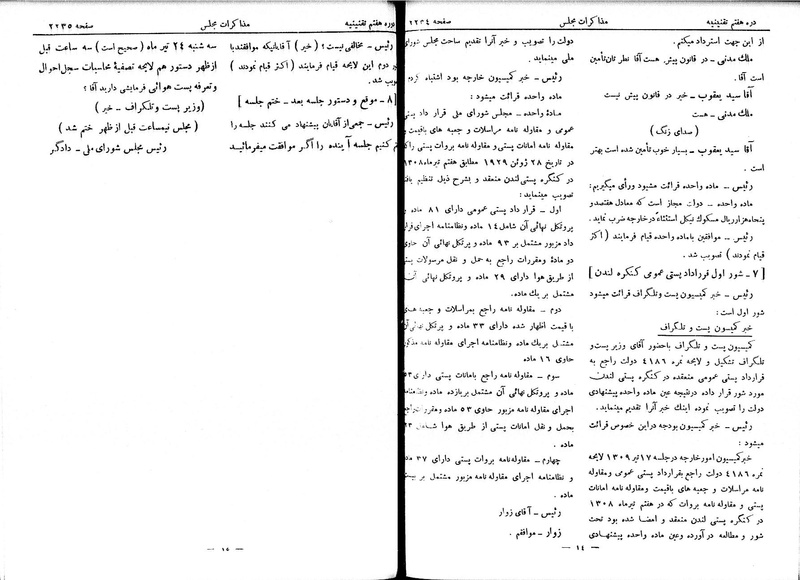 دوره هفتم تقنینیه
مذاکرات مجلس
صفحه ۲۲۳۴
از این جهت استرداد میکنم.
ملك مدنی ــ در قانون پیش هست آقا نظرتان تأمین
است آقا.
آقا سید یعقوب ــ خیر در قانون پیش نیست
ملك مدنی ــ هست
( صدای زنگ )
آقا سید یعقوب ــ بسیار خوب تأمین شده بهتر
است .
رئیس ــ ماده واحده قرائت میشود ورأی میگیریم:
ماده واحده ــ دولت مجاز است که معادل هفتصدو
پنجاه هزار ریال مسکوك نیکل استثناء درخارجه ضرب نماید.
رئیس ــ موافقین باماده واحده قیام فرمایند ( اکثر
قیام نمودند ) تصویب شد .
[ ۷ ــ شور اول قرارداد پستی عمومی کنگره لندن ]
رئیس ــ خبر کمیسیون پست وتلگراف قرائت میشود
شور اول است:
خبر کمیسیون پست و تلگراف
کمیسیون پست و تلگراف باحضور آقای وزیر پست و
تلگراف تشکیل و لایحه نمره ۴۱۸۶ دولت راجع به
قرارداد پستی عمومی منعقده در کنگره پستی لندن
مورد شور قرار داده درنتیجه عین ماده واحده پیشنهادی
دولت را تصویب نموده اینك خبر آنرا تقدیم مینماید.
رئیس ــ خبر کمیسیون بودجه دراین خصوص قرائت
میشود :
خبر کمیسیون امورخارجه درجلسه ۱۷ تیر ۱۳۰۹ لایحه
نمره ۴۱۸۶ دولت راجع بقرارداد پستی عمومی ومقاوله
نامه مراسلات و جعبه های باقیمت ومقاوله نامه امانات
پستی و مقاوله نامه بروات که در هفتم تیرماه ۱۳۰۸
در کنگره پستی لندن منعقد و امضا شده بود تحت
شور و مطالعه در آورده وعین ماده واحده پیشنهادی
دولت را تصویب و خبر آنرا تقدیم ساحت مجلس شورای
ملی مینماید.
رئیس ــ خبر کمیسیون خارجه بود اشتباه کردم
ماده واحده قرائت میشود :
مادۀ واحده ــ مجلس شورای ملی قرار داد پستی
عمومی و مقاوله نامه مراسلات و جعبه های باقیمت و
مقاوله نامه امانات پستی و مقاوله نامه بروات پستی را که
در تاریخ ۲۸ ژوئن ۱۹۲۹ مطابق هفتم تیرماه ۱۳۰۸
در کنگره پستی لندن منعقد و بشرح ذیل تنظیم یافته
تصویب مینماید:
اول ــ قرار داد پستی عمومی دارای ۸۱ ماده و
پروتکل نهائی آن شامل ۱۴ ماده ونظامنامه اجرای قرار
داد مزبور مشتمل بر ۹۳ ماده و پرتکل نهائی آن حاوی
دو مادۀ ومقررات راجع به حمل و نقل مرسولات پستی
از طریق هوا دارای ۲۹ ماده و پروتکل نهائی آن
مشتمل بر یك ماده.
دوم ــ مقاوله نامه راجع بمراسلات و جعبه های
با قیمت اظهار شده دارای ۳۳ ماده و پرتکل نهائی آن
مشتمل بریك ماده ونظامنامه اجرای مقاوله نامه مذکور
حاوی ۱۶ ماده
سوم ــ مقاوله نامه راجع بامانات پستی دارای ۵۳
ماده و پروتکل نهائی آن مشتمل بریازده ماده ونظامنامه
اجرای مقاوله نامه مزبور حاوی ۵۳ ماده ومقررات راجع
بحمل و نقل امانات پستی از طریق هوا شامل ۲۳
ماده .
چهارم ــ مقاوله نامه بروات پستی دارای ۳۷ ماده
و نظامنامه اجرای مقاوله نامه مزبور مشتمل بر بیست
ماده .
رئیس ــ آقای زوار
زوار ــ موافقم .
ــ ۱۴ ــ
دوره هفتم تقنینیه
مذاکرات مجلس
صفحه ۲۲۳۵
رئیس ــ مخالفی نیست؟ ( خیر ) آقایانیکه موافقند با
دوم این لایحه قیام فرمایند ( اکثر قیام نمودند )
تصویب شد .
[ ۸ ــ موقع و دستور جلسه بعد ــ ختم جلسه ]
رئیس ــ جمعی از آقایان پیشنهاد می کنند جلسه را
ختم کنیم جلسه آینده را اگر موافقت میفرمائید
سه شنبه ۲۴ تیر ماه ( صحیح است ) سه ساعت قبل
ازظهر دستور هم لایحه تصفیۀ محاسبات سجل احوال
وتعرفه پست هوائی فرمایشی دارید آقا ؟
( وزیر پست وتلگراف ــ خیر )
( مجلس نیمساعت قبل از ظهر ختم شد )
رئیس مجلس شورای ملی ــ دادگر
ــ ۱۵ ــ